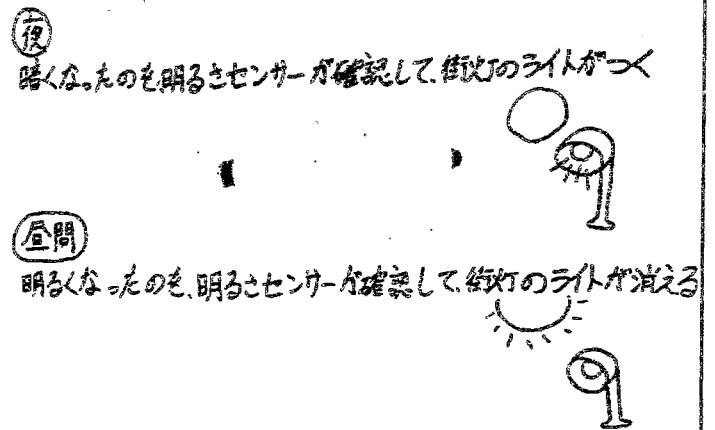 夜
暗くなったのを明るさセンサーが確認して、街灯のライトがつく
昼間
明るくなったのを、明るさセンサーが確認して、街灯のライトが消える